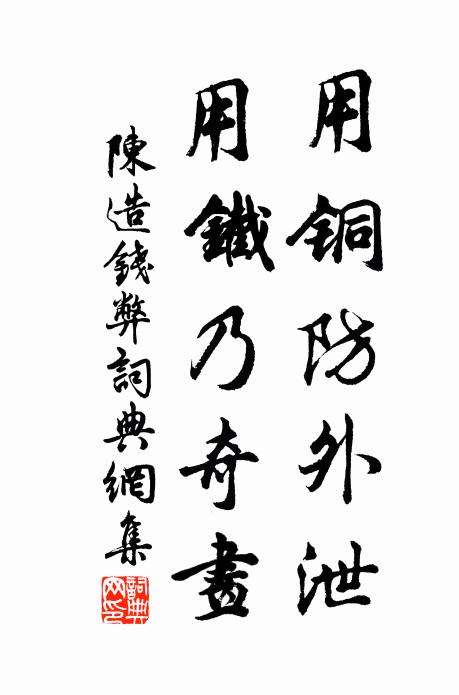 用銅防外泄
用鐵乃奇畫
陳造錢弊詞典網集
詞典網印